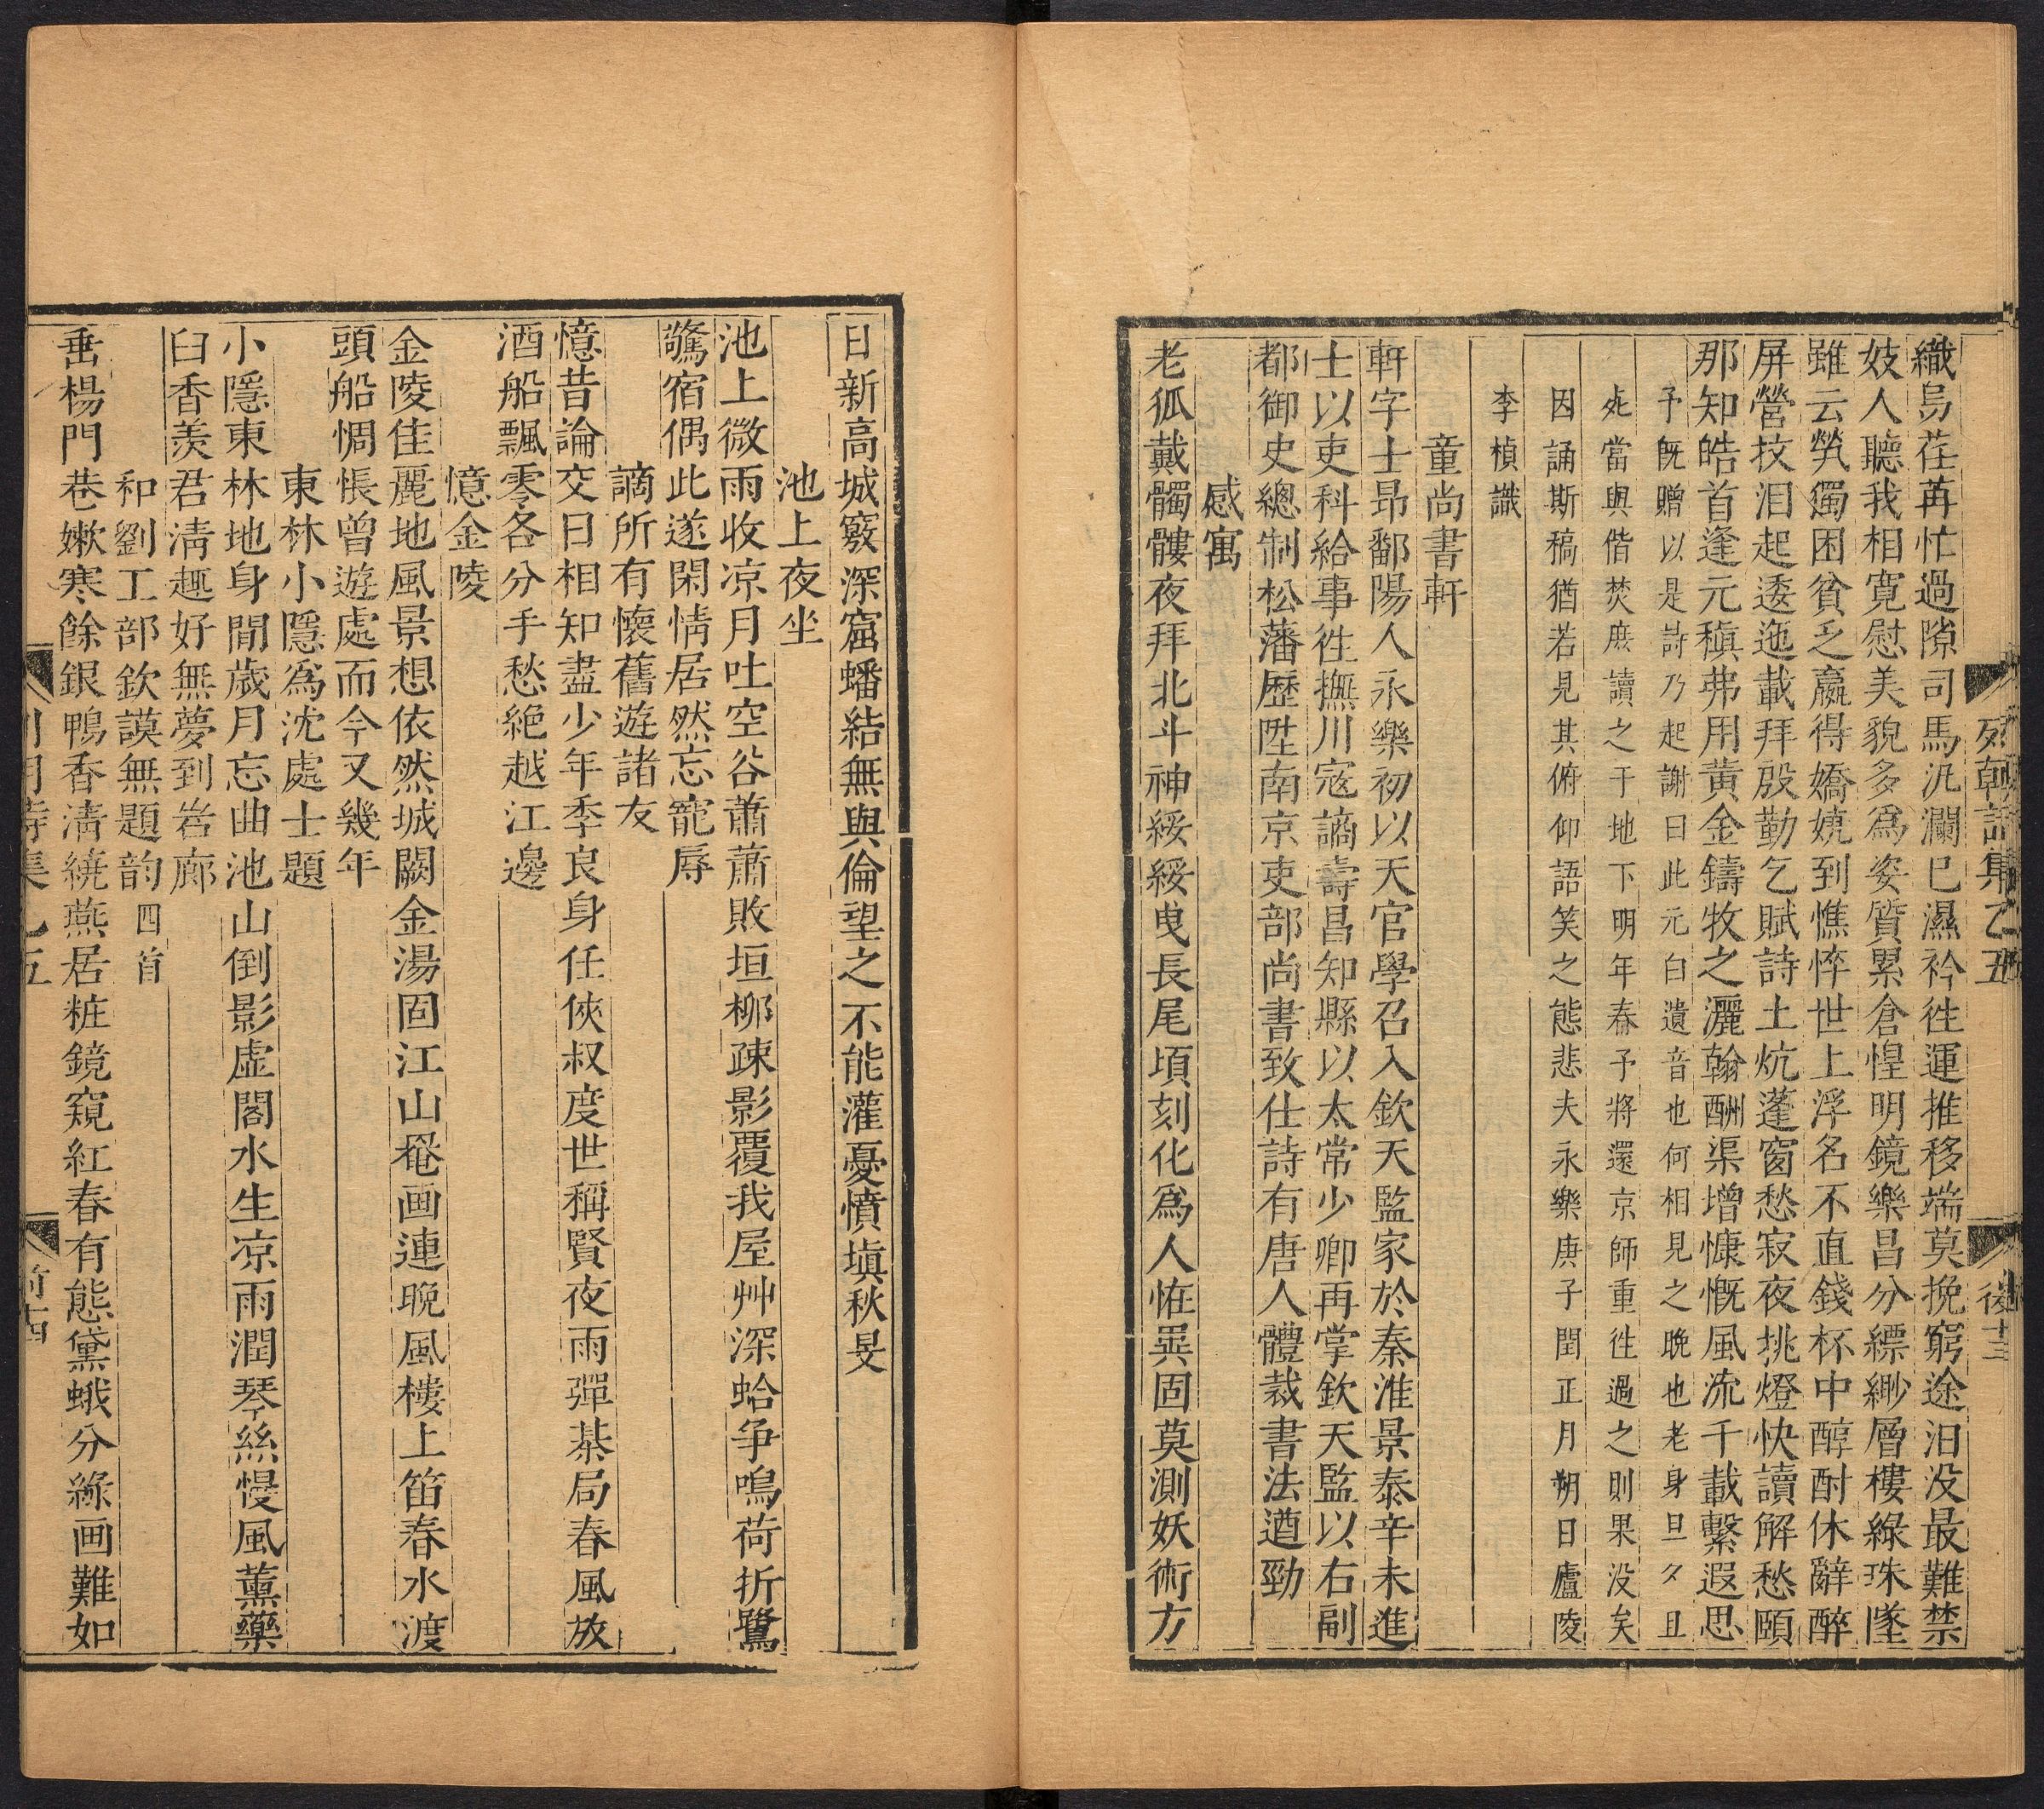 列朝詩集乙五
後十三
織烏荏苒忙過隙司馬汍瀾巳濕衿徃運推移端莫挽窮途汨没最難禁
妓人聽我相寛慰美貌多爲姿質累倉惶明鏡樂昌分縹緲層樓綠珠墜
雖云煢獨困貧乏嬴得嬌嬈到憔悴世上浮名不直錢杯中醇酎休辭醉
屏營技泪起逶迤載拜殷勤乞賦詩土炕蓬窗愁寂夜挑燈快讀解愁頤
那知皓首逢元稹弗用黄金鑄牧之灑翰酬渠增慷慨風流千載繫遐思
予旣贈以是詩乃起謝曰此元白遺音也何相見之晚也老身旦夕且
死當與偕焚庶讀之于地下明年春予將還京師重徃過之則果没矣
因誦斯稿猶若見其俯仰語笑之態悲夫永樂庚子閏正月朔日廬陵
李楨識
童尚書軒
軒字士昂鄱陽人永樂初以天官學召入欽天監家於秦淮景泰辛未進
士以吏科給事徃撫川寇謫壽昌知縣以太常少卿再掌欽天監以右副
都御史總制松藩歷陞南京吏部尚書致仕詩有唐人體裁書法遒勁
感寓
老狐戴髑髏夜拜北斗神綏綏曳長尾頃刻化爲人恠異固莫測妖術方
日新高城竅深窟蟠結無與倫望之不能灌憂憤塡秋旻
池上夜坐
池上微雨收凉月吐空谷蕭蕭敗垣柳疎影覆我屋艸深蛤争鳴荷折鷺
驚宿偶此遂閑情居然忘寵辱
謫所有懷舊遊諸友
憶昔論交日相知盡少年季良身任俠叔度世稱賢夜雨彈棊局春風放
酒船飄零各分手愁絶越江邊
憶金陵
金陵佳麗地風景想依然城闕金湯固江山罨画連晚風樓上笛春水渡
頭船惆悵曾遊處而今又幾年
東林小隱爲沈處士題
小隱東林地身間歲月忘曲池山倒影虛閣水生凉雨潤琴絲慢風薰藥
臼香羨君清趣好無夢到岩廊
和劉工部欽謨無題韵四首
垂楊門巷嫩寒餘銀鴨香清繞燕居粧鏡窺紅春有態黛蛾分綠画難如